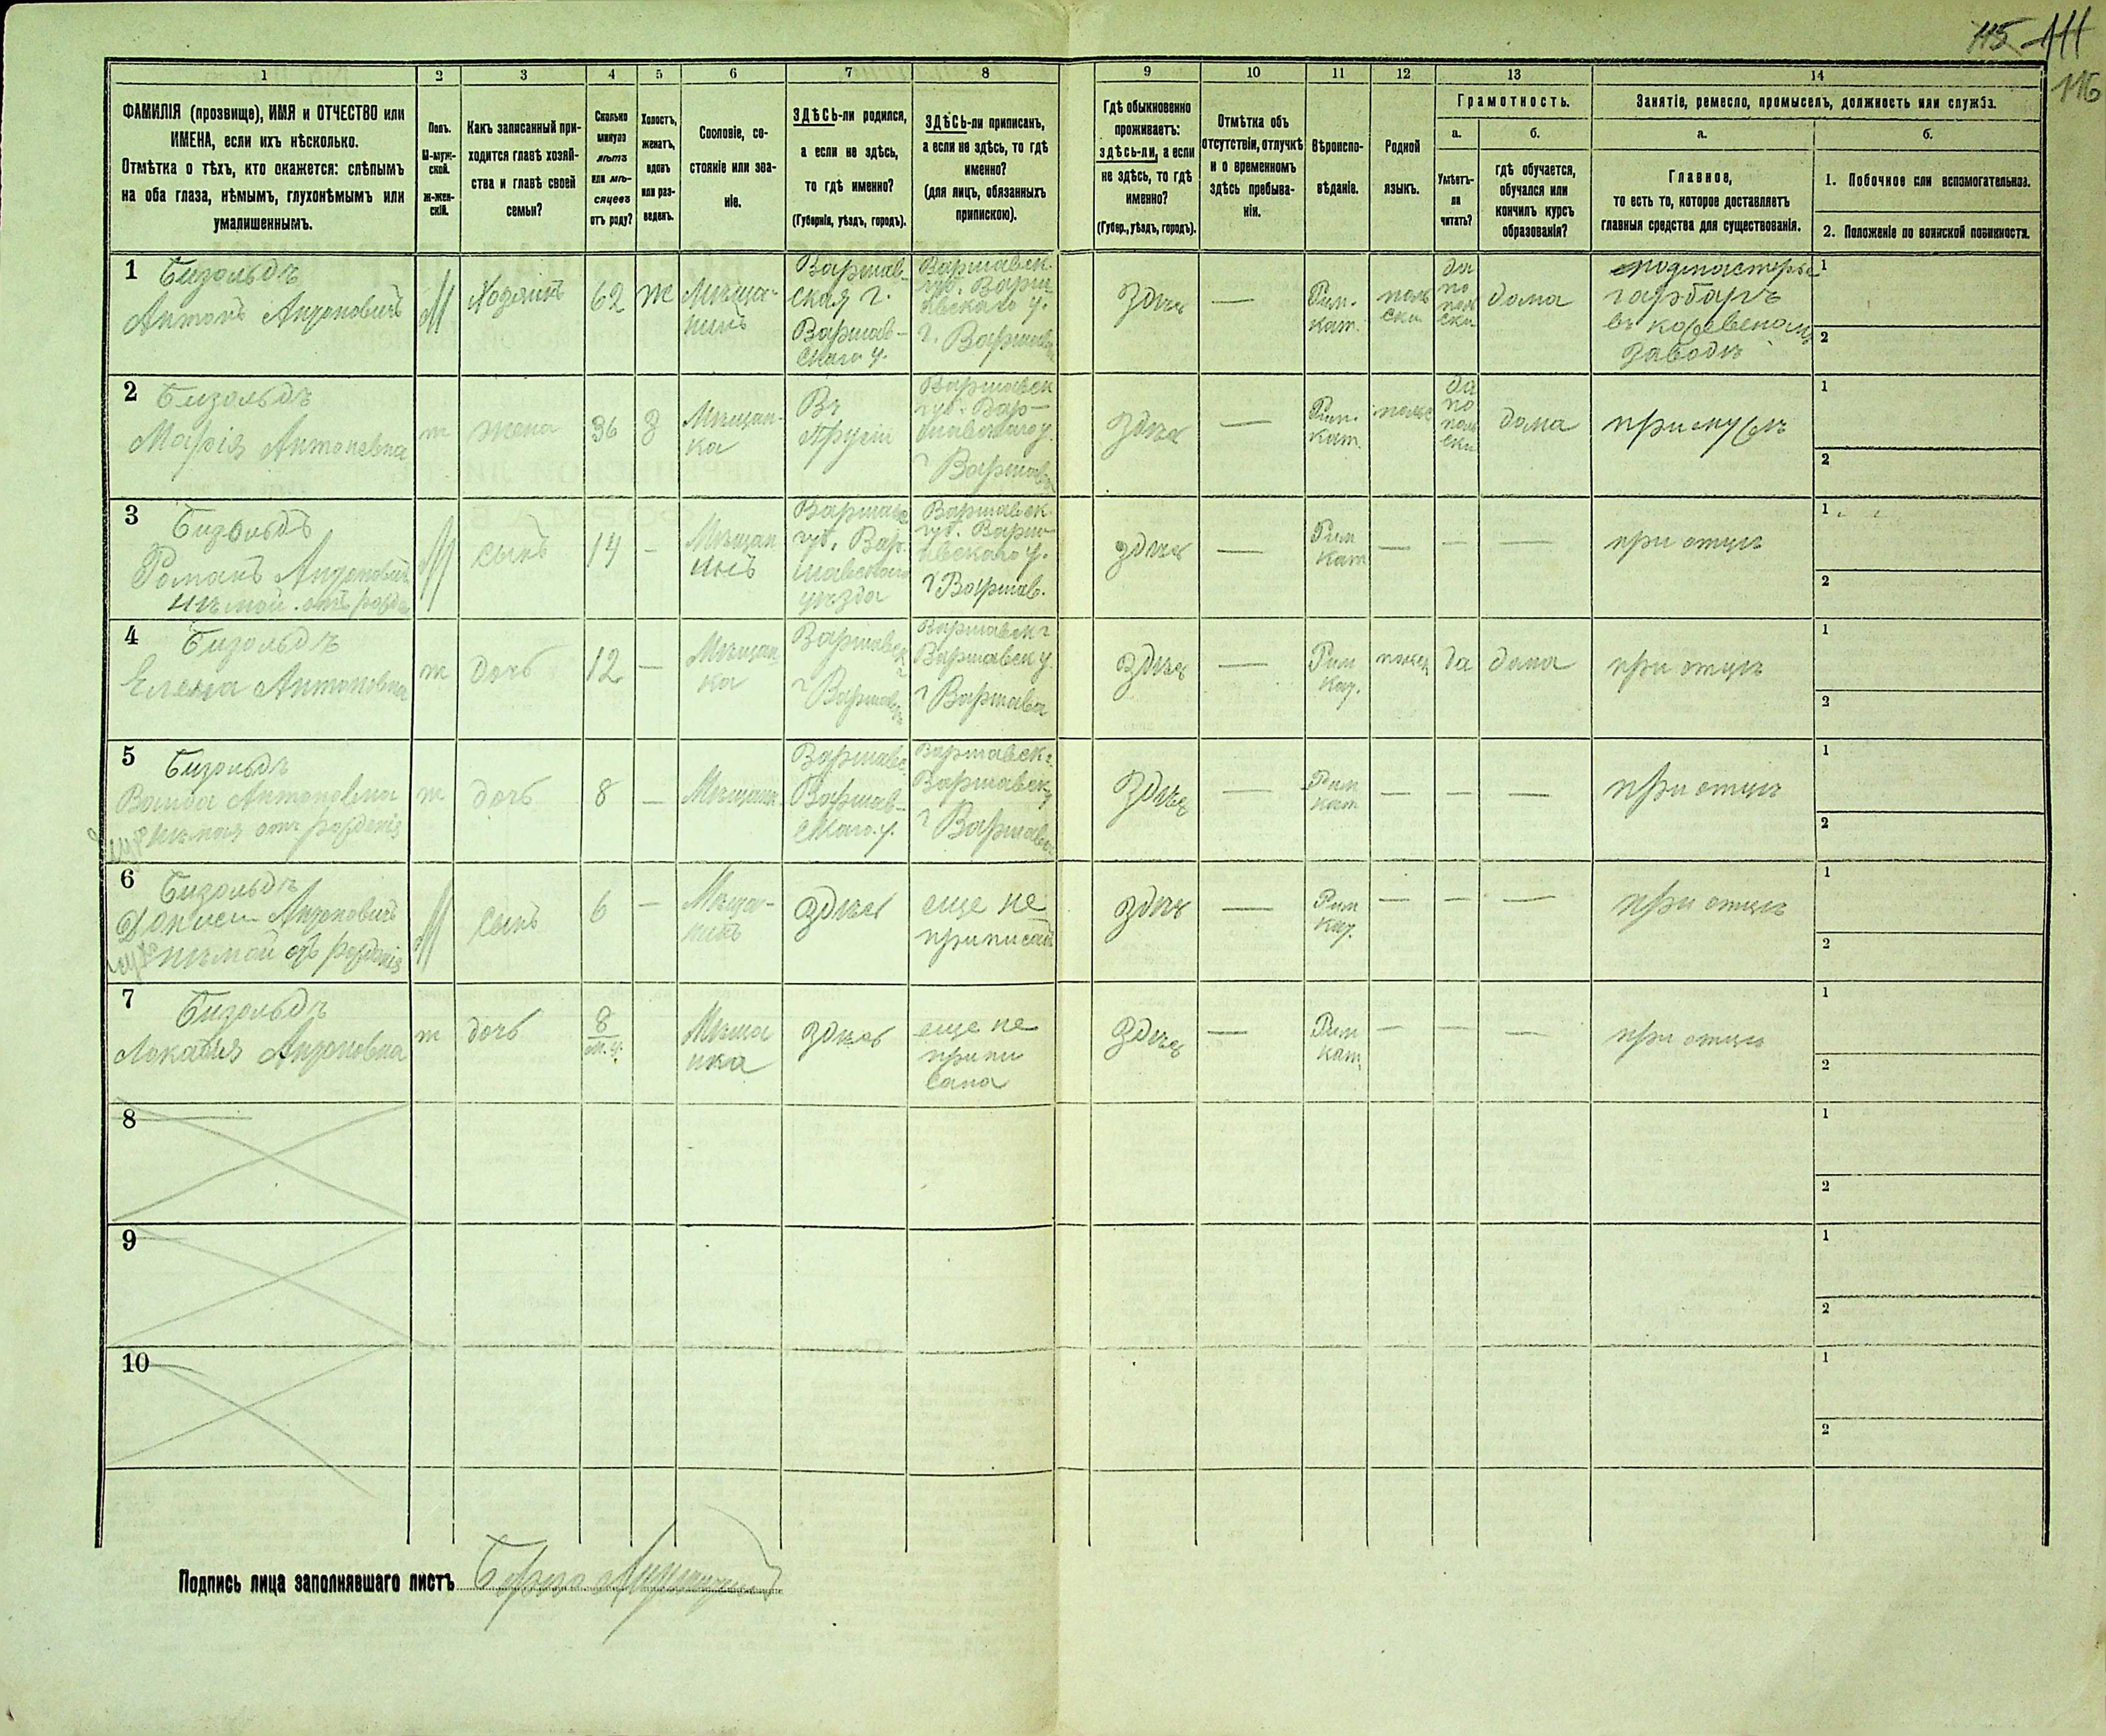 115 111
116
1
2
3
4
5
6
7
8
9
10
11
12
13
14
ФАМИЛІЯ (прозвище), ИМЯ и ОТЧЕСТВО или
ИМЕНА, если ихъ нѣсколько.
Отмѣтка о тѣхъ, кто окажется: слѣпымъ
на оба глаза, нѣмымъ, глухонѣмымъ или
умалишеннымъ.
Полъ.
М-муж-
ской.
ж-жен-
скій.
Какъ записанный при-
ходится главѣ хозяй-
ства и главѣ своей
семьи?
Сколько
минуло
лѣтъ
или мѣ-
сяцевъ
отъ роду?
Холостъ,
женатъ,
вдовъ
или раз-
веденъ.
Сословіе, со-
стояніе или зва-
ніе.
ЗДѢСЬ-ли родился,
а если не здѣсь,
то гдѣ именно?
(Губернія, уѣздъ, городъ).
ЗДѢСЬ-ли приписанъ,
а если не здѣсь, то гдѣ
именно?
(для лицъ, обязанныхъ
припискою).
Гдѣ обыкновенно
проживаетъ:
здѣсь-ли, а если
не здѣсь, то гдѣ
именно?
(Губер., уѣздъ, городъ).
Отмѣтка объ
отсутствіи, отлучкѣ
и о временномъ
здѣсь пребыва-
ніи.
Вѣроиспо-
вѣданіе.
Родной
языкъ.
Грамотность.
а.
Умѣетъ-
ли
читать?
б.
гдѣ обучается,
обучался или
кончилъ курсъ
образованія?
Занятіе, ремесло, промыселъ, должность или служба.
а.
Главное,
то есть то, которое доставляетъ
главныя средства для существованія.
б.
1. Побочное или вспомогательное.
2. Положеніе по воинской повинности.
1
Бизольдъ
Антонъ Андроновичъ
М
Хозяинъ
62
ж
Мѣща-
нинъ
Варшав-
ская г.
Варшав-
скаго у.
Варшавск.
губ. Варша
вскаго у.
г. Варшава
здѣсь
—
Рим.
кат.
поль
ски
да
по
поль
ски
дома
подмастерье
гарбаръ
въ кожевеномъ
заводѣ
1
2
2
Бизольдъ
Марія Антоневна
ж
жена
36
З
Мѣщан-
ка
Въ
Прусіи
Варшавск
губ. Вар-
шавскаго у.
г Варшава
здѣсь
—
Рим.
кат.
польс
да
по
поль
ски
дома
при мужѣ
1
2
3
Бизольдъ
Романъ Антоновичъ
нѣмой отъ рожде
М
сынъ
14
—
Мѣщан
инъ
Варшавс
губ. Вар-
шавскаго
уѣзда
Варшавск
губ. Варша-
вскаго у.
г Варшав.
здѣсь
—
Рим
кат
—
—
—
при отцѣ
1
2
4
Бизольдъ
Елена Антоновна
ж
дочь
12
—
Мѣщан
ка
Варшавск
г Варшава
Варшавск г
Варшавск у.
г Варшава
здѣсь
—
Рим
кат.
польск
да
дома
при отцѣ
1
2
5
Бизольдъ
Ванда Антоновна
глухонѣмая отъ рожденія
ж
дочь
8
—
Мѣщанк
Варшавс.
Варшав-
скаго.у.
Варшавск г.
Варшавск у
г Варшава
здѣсь
—
Рим
кат
—
—
—
при отцѣ
1
2
6
Бизольдъ
Антоновичъ
глухонѣмой отъ рожденія
М
сынъ
6
—
Мѣща-
нинъ
здѣсь
еще не
приписанъ
здѣсь
—
Рим
кат.
—
—
—
при отцѣ
1
2
7
Бизольдъ
Локадия Антоновна
ж
дочь
8
м.ц.
Мѣща
нка
здѣсь
еще не
припи
сана
здѣсь
—
Рим
кат.
—
—
—
при отцѣ
1
2
8
1
2
9
1
2
10
1
2
Подпись лица заполнявшаго листъ